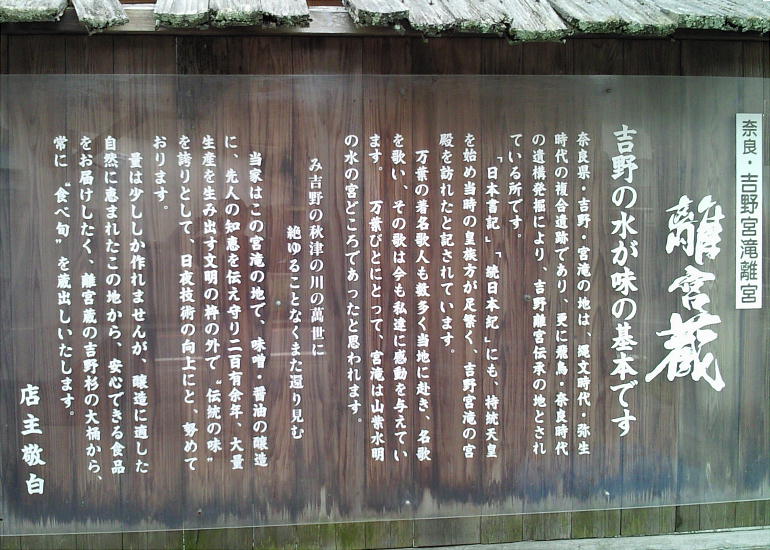 奈良・吉野宮滝離宮
離宮蔵
吉野の水が味の基本です
奈良県・吉野・宮滝の地は、縄文時代・弥生
時代の複合遺跡であり、更に飛鳥・奈良時代
の遺構発掘により、吉野離宮伝承の地とされ
ている所です。
「日本書記」「続日本紀」にも、持統天皇
を始め当時の皇族方が足繁く、吉野宮滝の宮
殿を訪れたと記されています。
万葉の著名歌人も数多く当地に赴き、名歌
を歌い、その歌は今も私達に感動を与えてい
ます。 万葉びとにとって、宮滝は山紫水明
の水の宮どころであったと思われます。
み吉野の秋津の川の萬世に
絶ゆることなくまた還り見む
当家はこの宮滝の地で、味噌・醤油の醸造
に、先人の知恵を伝え守り二百有余年、大量
生産を生み出す文明の枠の外で〝伝統の味〟
を誇りとして、日夜技術の向上にと、努めて
おります。
量は少ししか作れませんが、醸造に適した
自然に恵まれたこの地から、安心できる食品
をお届けしたく、離宮蔵の吉野杉の大桶から、
常に〝食べ旬〟を蔵出しいたします。
店主敬白